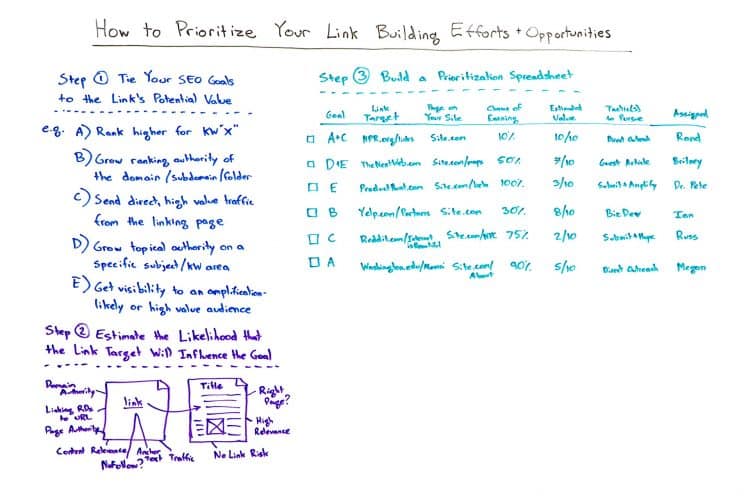 How to Prioritize Your Link Building Efforts + Opportunities
Step ① Tie Your SEO Goals
to the Link's Potential Value
e.g. A) Rank higher for KW "X"
B) Grow ranking authority of
the domain/subdomain/folder
C) Send direct, high value traffic
from the linking page
D) Grow topical authority on a
specific subject/KW area
E) Get visibility to an amplification-
likely or high value audience
Step ② Estimate the Likelihood that
the Link Target Will Influence the Goal
Domain
Authority
Linking RDs
to URL
Page Authority
Content Relevance
NoFollow?
Anchor
Text
Traffic
link
Title
Right
Page?
High
Relevance
No Link Risk
Step ③ Build a Prioritization Spreadsheet
Goal Link Target Page on Your Site Chance of Earning Estimated Value Tactic(s) to Pursue Assigned
A+C NPR.org/links Site.com 10% 10/10 Direct Outreach Rand
D+E TheNextWeb.com Site.com/maps 50% 7/10 Guest Article Britney
E ProductHunt.com Site.com/beta 100% 3/10 Submit + Amplify Dr. Pete
B Yelp.com/Partners Site.com 30% 8/10 BizDev Ian
C Reddit.com/Internet is Beautiful Site.com/NYC 75% 2/10 Submit + Hope Russ
A Washington.edu/ Site.com/About 90% 5/10 Direct Outreach Megan